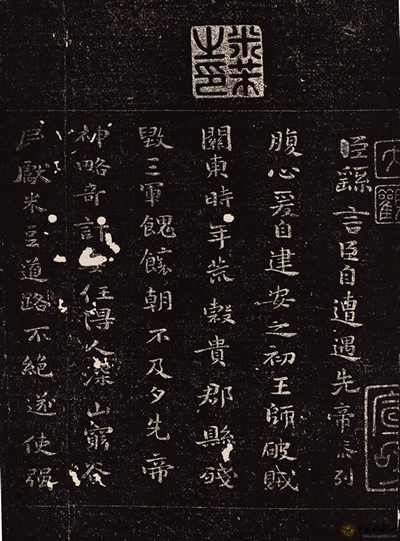 米芾之印
大觀
臣繇言臣自遭遇先帝忝列
腹心爰自建安之初王師破賊
關東時年荒穀貴郡縣殘
毀三軍餽饟朝不及夕先帝
神略奇計委任得人深山窮谷
民獻米豆道路不絕遂使强